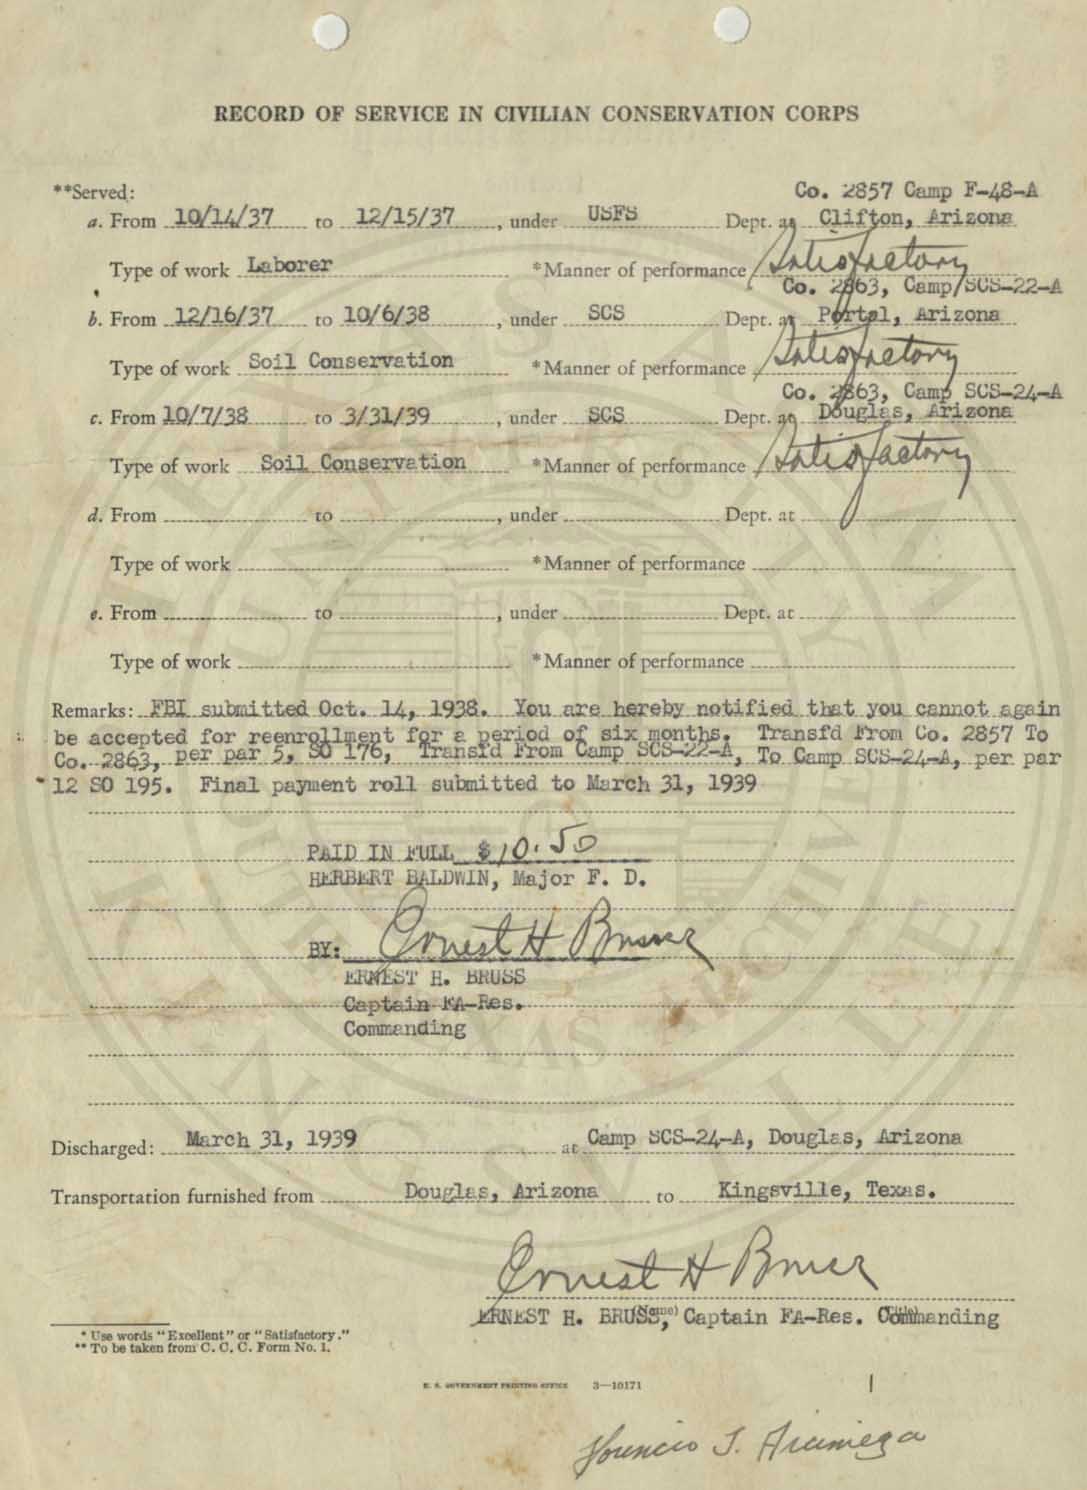 RECORD OF SERVICE IN CIVILIAN CONSERVATION CORPS
**Served: Co. 2857 Camp F-48-A
a. From 10/14/37 to 12/15/37, under USFS Dept. at Clifton, Arizona
Type of work Laborer *Manner of performance Satisfactory
Co. 2863, Camp SCS-22-A
b. From 12/16/37 to 10/6/38, under SCS Dept. at Portal, Arizona
Type of work Soil Conservation *Manner of performance Satisfactory
Co. 2863, Camp SCS-24-A
c. From 10/7/38 to 3/31/39, under SCS Dept. at Douglas, Arizona
Type of work Soil Conservation *Manner of performance Satisfactory
d. From to , under Dept. at
Type of work *Manner of performance
e. From to , under Dept. at
Type of work *Manner of performance
Remarks: FBI submitted Oct. 14, 1938. You are hereby notified that you cannot again
be accepted for reenrollment for a period of six months. Transf'd From Co. 2857 To
Co. 2863, per par 5, SO 176, Transf'd From Camp SCS-22-A, To Camp SCS-24-A, per par
12 SO 195. Final payment roll submitted to March 31, 1939
PAID IN FULL $10.50
HERBERT BALDWIN, Major F. D.
BY: Ernest H Bruss
ERNEST H. BRUSS
Captain FA-Res.
Commanding
Discharged: March 31, 1939 at Camp SCS-24-A, Douglas, Arizona
Transportation furnished from Douglas, Arizona to Kingsville, Texas.
Ernest H Bruss
ERNEST H. BRUSS, (Name) Captain FA-Res. Commanding (Title)
* Use words "Excellent" or "Satisfactory."
** To be taken from C. C. C. Form No. 1.
U. S. GOVERNMENT PRINTING OFFICE 3—10171